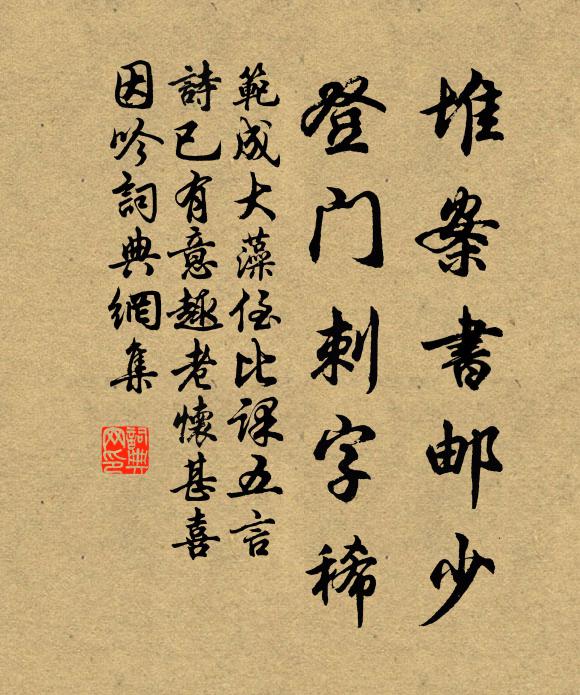 堆案書邮少
登门刺字稀
範成大藻侄比課五言
詩已有意趣老懷甚喜
因吟詞典網集
詞典網印